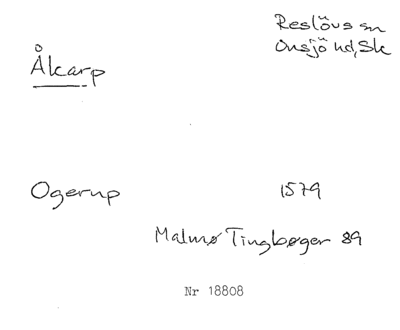 Reslövs sn
Onsjö hd, Sk
Åkarp
Ogerup 1579
Malmø Tingbøger 89
Nr 18808